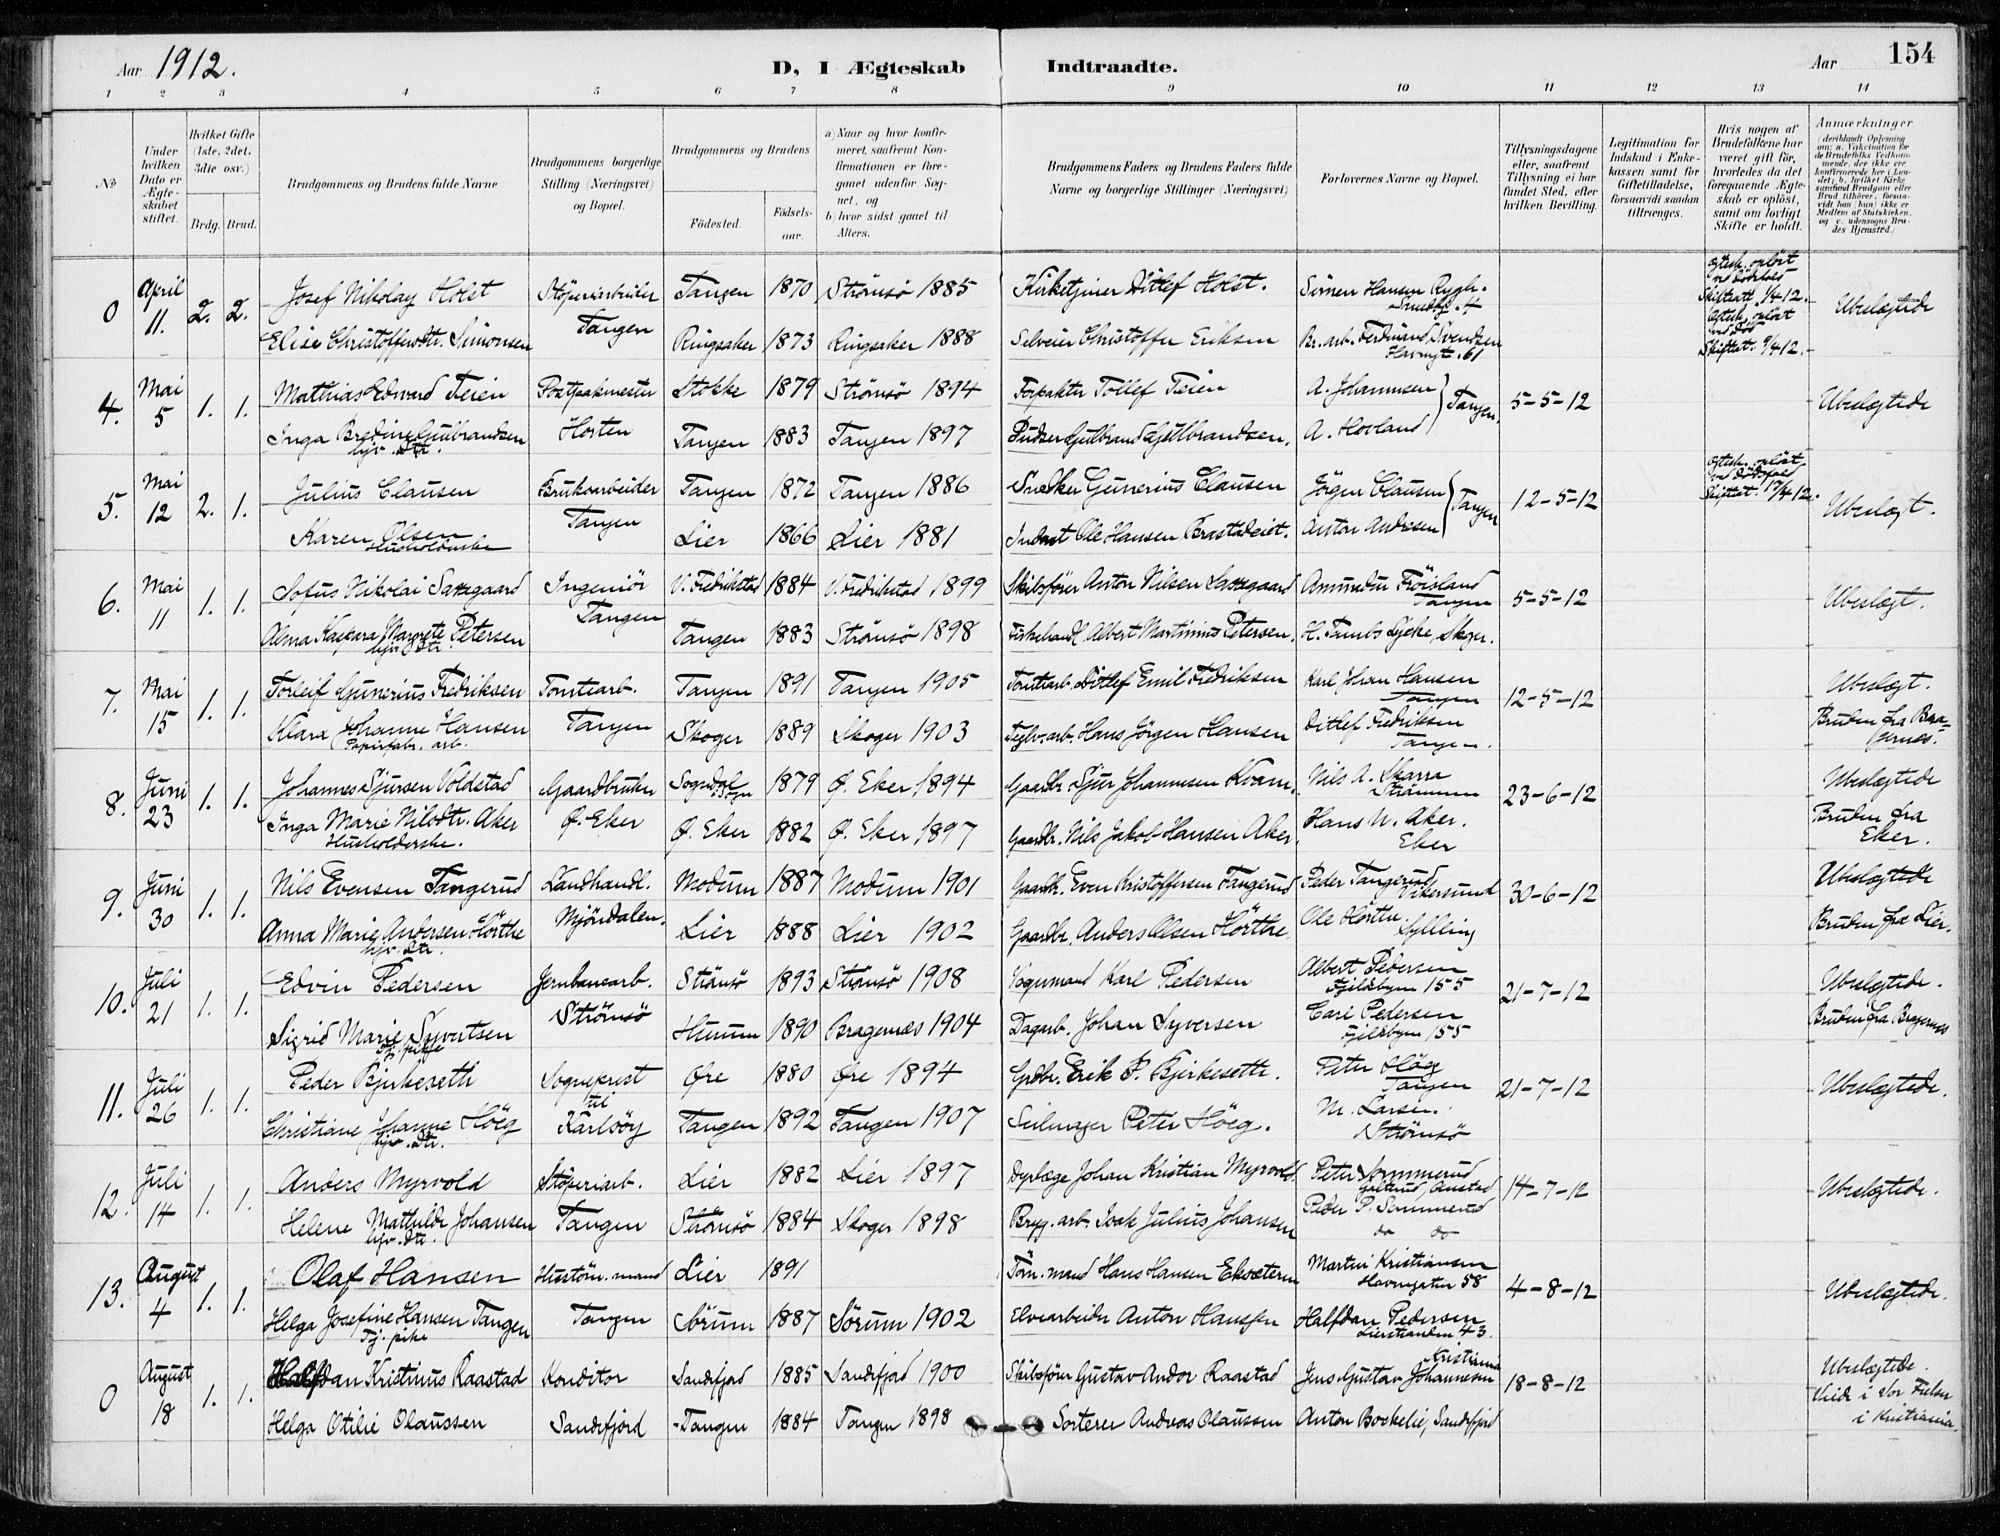 Aar 1912.
D, I Ægteskab Indtraadte.
Aar 154
1 2 3 4 5 6 7 8 9 10 11 12 13 14
No
Under hvilken Dato er Ægteskabet stiftet.
Hvilket Gifte (1ste, 2det, 3die osv.)
Brdg. Brud.
Brudgommens og Brudens fulde Navne
Brudgommens borgerlige Stilling (Næringsvei) og Bopæl.
Brudgommens og Brudens
Födested. Födselsaar.
a) Naar og hvor konfirmeret, saafremt Konfirmationen er foregaaet udenfor Sognet, og
b) hvor sidst gaaet til Alters.
Brudgommens Faders og Brudens Faders fulde Navne og borgerlige Stillinger (Næringsvei)
Forlovernes Navne og Bopæl.
Tillysningsdagene eller, saafremt Tillysning ei har fundet Sted, efter hvilken Bevilling.
Legitimation for Indskud i Enkekassen samt for Giftetilladelse, forsaavidt saadan tiltrænges.
Hvis nogen af Brudefolkene har været gift för, hvorledes da det foregaaende Ægteskab er oplöst, samt om lovligt Skifte er holdt.
Anmærkninger
0 April 11. 2. 2. Josef Nikolay Holst Støperiarbeider Tangen 1870 Strømsö 1885 Kirketjener Ditlef Holst. Simen Hansen Rygh.
Tangen
Elise Christoffersdtr. Simonsen Ringsaker 1873 Ringsaker 1888 Selveier Christoffer Eriksen Br. arb. Ferdinand Svendsen
Havnegt. 61
Skifteatt. 9/4 12.
Ubeslægtede
4. Mai 5 1. 1. Mathias Edvard Teien Postpakmester Stokke 1879 Strømsö 1894 Forpakter Tollef Teien A. Johannesen 5-5-12 Ubeslægtede
Inga Bredine Gulbrandsen Horten Tangen 1883 Tangen 1897 Pudser Gulbrand Gulbrandsen. A. Hovland Tangen.
hjv. Dtr.
5. Mai 12 2. 1. Julius Clausen Bruksarbeider Tangen 1872 Tangen 1886 Snedker Gunerius Clausen Jörgen Clausen Tangen 12-5-12 Skifteat. 17/4 12. Ubeslægt.
Karen Olsen Tangen Lier 1866 Lier 1881 Inderst Ole Hansen Brastadeiet. Anton Andresen
Husholderske
6. Mai 11 1. 1. Sofus Nikolai Saxegaard Ingeniör V. Fredrikstad 1884 V. Fredrikstad 1899 Skibsförer Anton Nilsen Saxegaard Amundur Fröisland 5-5-12 Ubeslægt.
Tangen
Alma Kaspara Margrete Petersen Tangen Tangen 1883 Strömsö 1898 Fiskehandl. Albert Martinius Petersen. H. Tambs Lyche, Skger.
hjv. Dtr.
7. Mai 15 1. 1. Torleif Gunerius Fredriksen Tomtearb. Tangen 1891 Tangen 1905 Tomtearb. Ditlef Emil Fredriksen Karl Johan Hansen 12-5-12 Ubeslægt.
Tangen
Klara Johanne Hansen Tangen Skoger 1889 Skoger 1903 Teglv. arb. Hans Jörgen Hansen Ditlef Fredriksen Bruden fra Bragernes.
Papirfabr. arb. Tangen.
8. Juni 23 1. 1. Johannes Sjursen Voldstad Gaardbruker Sogndal Sogn 1879 Ø. Eker 1894 Gaardbr. Sjur Johannesen Kvam. Nils A. Skarra 23-6-12 Ubeslægtede
Strömmen
Inga Marie Nilsdtr. Aker Ø. Eker Ø. Eker 1882 Ø. Eker 1897 Gaardbr. Nils Jakob Hansen Aker. Hans N. Aker. Bruden fra Eker.
Husholderske. Eker
9. Juni 30 1. 1. Nils Evensen Tangerud Landhandl. Modum 1887 Modum 1901 Gaardb. Even Kristoffersen Tangerud Peder Tangerud Vikersund 30-6-12 Ubeslægtede
Anna Marie Andersen Hörthe Mjöndalen. Lier 1888 Lier 1902 Gaardbr. Anders Olsen Hörthe Ole Horten. Sylling Bruden fra Lier.
hjv. Dtr.
10. Juli 21 1. 1. Edvin Pedersen Jernbanearb. Strömsö 1893 Strömsö 1908 Vognmand Karl Pedersen Albert Pedersen 21-7-12 Ubeslægtede.
Fjeldbyen 155
Sigrid Marie Syvertsen Strömsö Hurum 1890 Bragernæs 1904 Dagarb. Johan Syversen Carl Pedersen Bruden fra Bragernes
Tj. pike Fjeldbyen 155
11. Juli 26 1. 1. Peder Bjerkeseth Sogneprest Øre 1880 Øre 1894 Grdbr. Erik P. Bjerkeseth. Peter Höeg 21-7-12 Ubeslægtede.
til Tangen
Christiane Johanne Höeg Karlsöy Tangen 1892 Tangen 1907 Seilmager Peter Höeg. M. Larsen.
hjv. Dtr. Strömsö
12. Juli 14 1. 1. Anders Myrvold Støperiarb. Lier 1882 Lier 1897 Dyrlæge Johan Kristian Myrvold Peter Semmerud 14-7-12 Ubeslægtede.
Helene Mathilde Johansen Tangen Strömsö 1884 Skoger 1898 Bryg. arb. Isak Julius Johansen Peder P. Semmerud
hjv. Dtr. do do
13. August 4 1. 1. Olaf Hansen Hustöm. mand Lier 1891 Töm. mand Hans Hansen Eksæteren Martin Kristiansen 4-8-12 Ubeslægtede.
Havnegaten 58
Helga Josefine Hansen Tangen Tangen Sörum 1887 Sörum 1902 Elvearbeider Anton Hansen Halfdan Pedersen
Tj. pike Lierstranden 43.
0 August 18 1. 1. Halfdan Kristinus Raastad Konditor Sandefjord 1885 Sandefjord 1900 Skibsförer Gustav Andor Raastad Jens Gustav Johannesen Kristiania 18-8-12 Ubeslægtede.
Helga Otilie Olaussen Sandefjord Tangen 1884 Tangen 1898 Sorterer Andreas Olaussen Anton Bockelie, Sandefjord Viede i Vor Frelser i Kristiania.